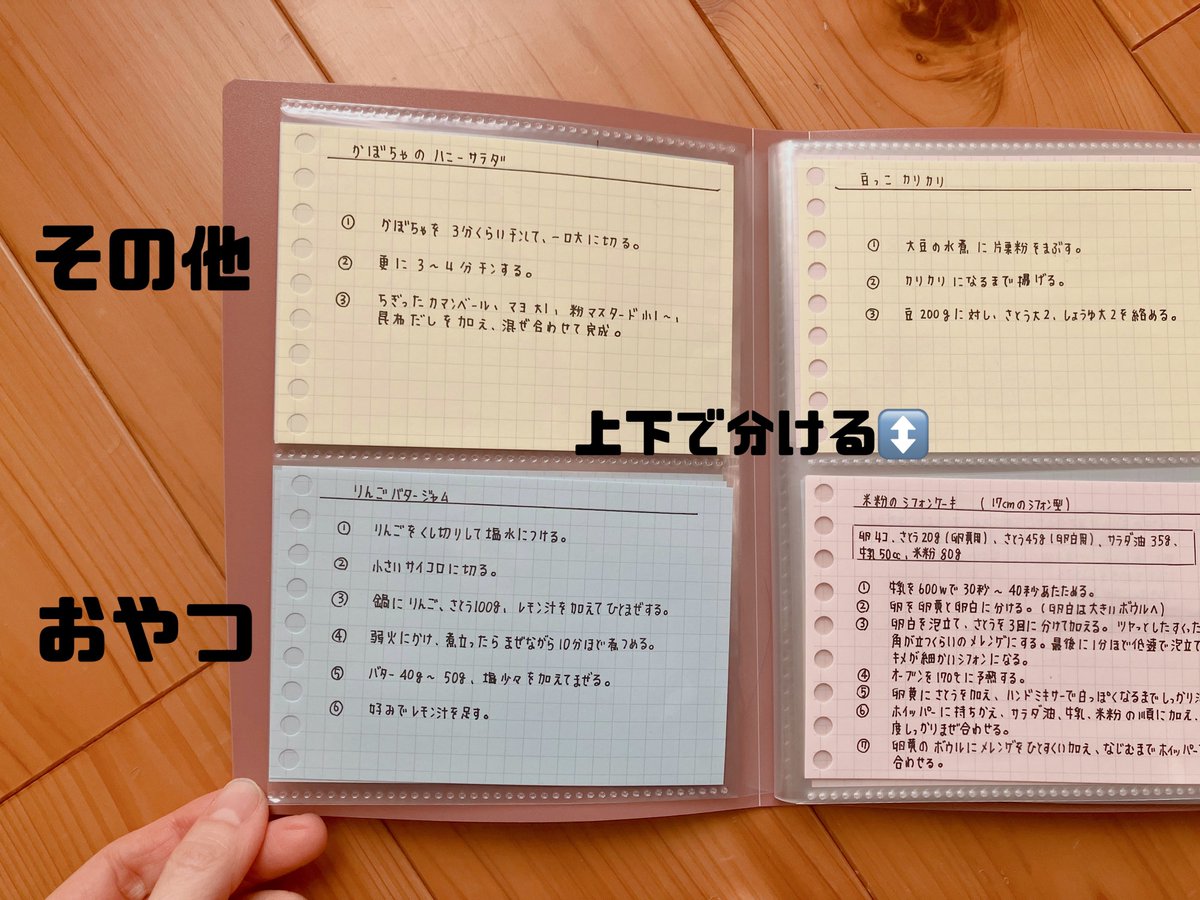 その他
おやつ
上下で分ける↕️
かぼちゃの ハニーサラダ
① かぼちゃを 3分くらいチンして、一口大に切る。
② 更に 3〜4分チンする。
③ ちぎったカマンベール、マヨ大1、粉マスタード小1〜、
昆布だしを加え、混ぜ合わせて完成。
りんごバタージャム
① りんごをくし切りして塩水につける。
② 小さいサイコロに切る。
③ 鍋にりんご、さとう100g、レモン汁を加えてひとまぜする。
④ 弱火にかけ、煮立ったらまぜながら10分ほど煮つめる。
⑤ バター40g〜50g、塩少々を加えてまぜる。
⑥ 好みでレモン汁を足す。
豆っこ カリカリ
① 大豆の水煮に片栗粉をまぶす。
② カリカリになるまで揚げる。
③ 豆200gに対し、さとう大2、しょうゆ大2を絡める。
米粉のシフォンケーキ (17cmのシフォン型)
卵4コ、さとう20g(卵黄用)、さとう45g(卵白用)、サラダ油35g、
牛乳50cc、米粉80g
① 牛乳を600wで30秒〜40秒あたためる。
② 卵を卵黄と卵白に分ける。(卵白は大きいボウルへ)
③ 卵白を泡立て、さとうを3回に分けて加える。ツヤっとしたすくった
角が立つくらいのメレンゲにする。最後に1分ほど低速で泡立て
キメが細かいシフォンになる。
④ オーブンを170℃に予熱する。
⑤ 卵黄にさとうを加え、ハンドミキサーで白っぽくなるまでしっかり
⑥ ホイッパーに持ちかえ、サラダ油、牛乳、米粉の順に加え、
度しっかりまぜ合わせる。
⑦ 卵黄のボウルにメレンゲをひとすくい加え、なじむまでホイッパー
合わせる。